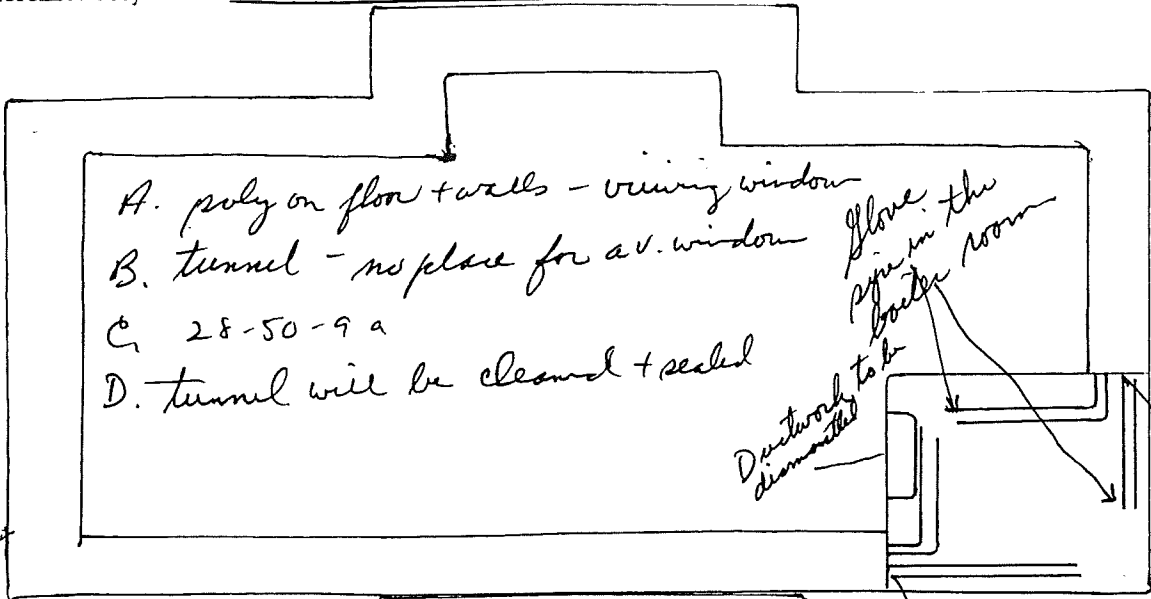 A. poly on floor + walls - viewing window
B. tunnel - no place for a v. window
C, 28-50-9 a
D. tunnel will be cleaned + sealed
Glove
in the
boiler room
Ductwork to be
dismantled